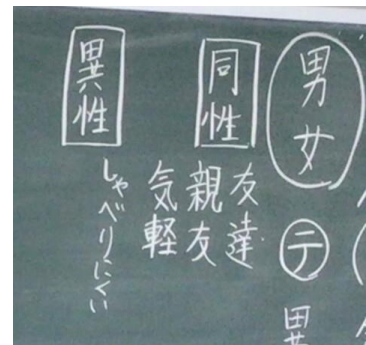 男女
テ 異
同性
友達
親友
気軽
異性
しゃべりにくい